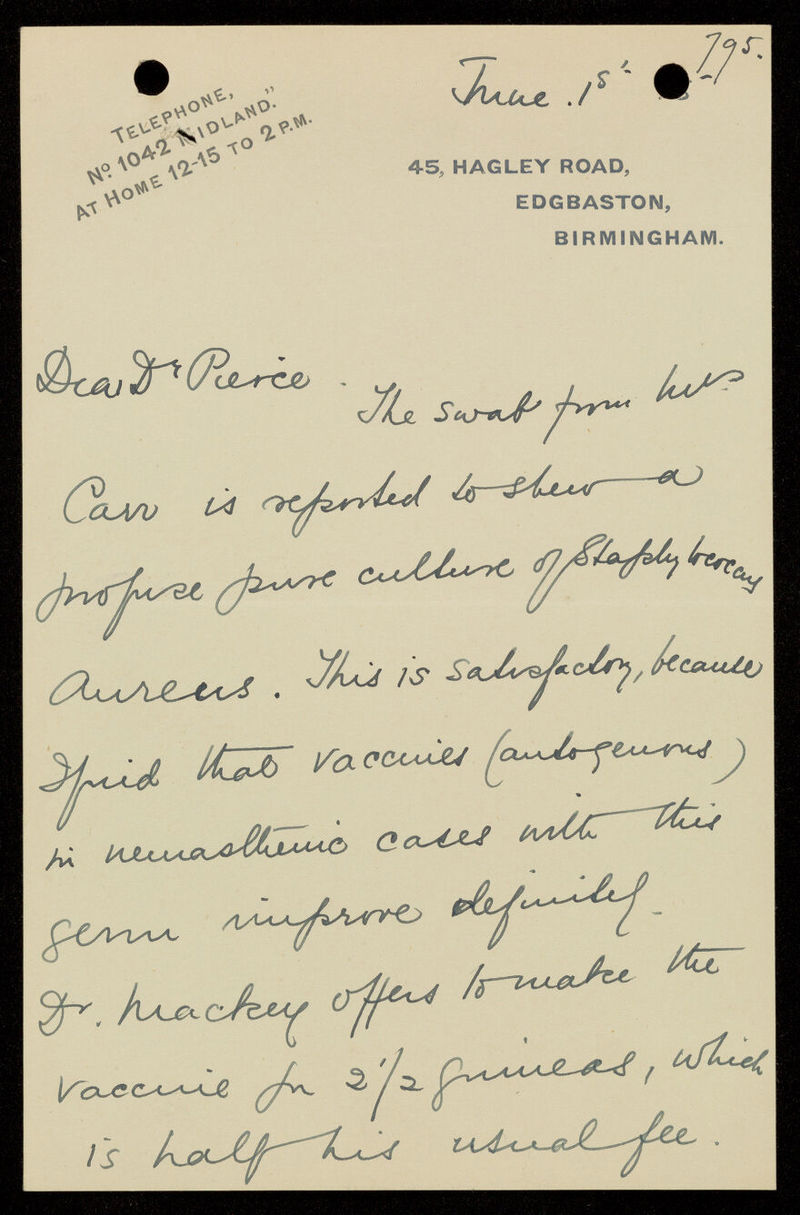 795.
June. 1st
TELEPHONE,
No. 1042 MIDLAND."
AT HOME 12-15 TO 2 P.M.
45, HAGLEY ROAD,
EDGBASTON,
BIRMINGHAM.
Dear Dr Pierce.
The swab from
Carr is reported to shew a
profuse pure culture of Staphylococcus
Aureus. This is satisfactory, because
I find that vaccines (autogenous)
in neurasthenic cases with this
germ improve definitely.
Dr. Mackey offers to make the
vaccine for 2 1/2 guineas, which
is half his usual fee.